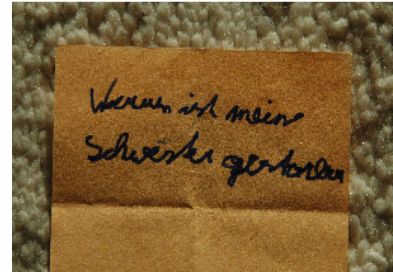 Warum ist meine
Schwester gestorben